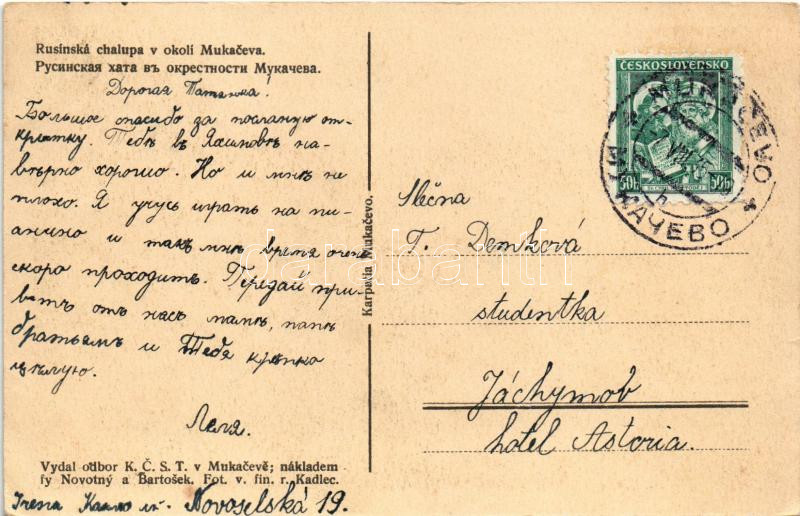 Rusínská chalupa v okolí Mukačeva.
Русинская хата въ окрестности Мукачева.
Дорогая Татянка!
Большое спасибо за посланую от-
крытку. Тебѣ в Яхимовѣ на-
вѣрно хорошо. Но и мнѣ не
плохо. Я учусь играть на пи-
анино и такъ мнѣ время очень
скоро проходитъ. Передай при-
вѣтъ отъ насъ мамѣ, папѣ
братьямъ и Тебя крѣпко
цѣлую.
Леля.
Vydal odbor K. Č. S. T. v Mukačevě; nákladem
fy Novotný a Bartošek. Fot. v. fin. r. Kadlec.
Irena
Novoselská 19.
Karpatia Mukačevo.
ČESKOSLOVENSKO
50h 50h
MUKAČEVO
МУКАЧЕВО
Slečna
T. Demková
studentka
Jáchymov
hotel Astoria.
darabanth